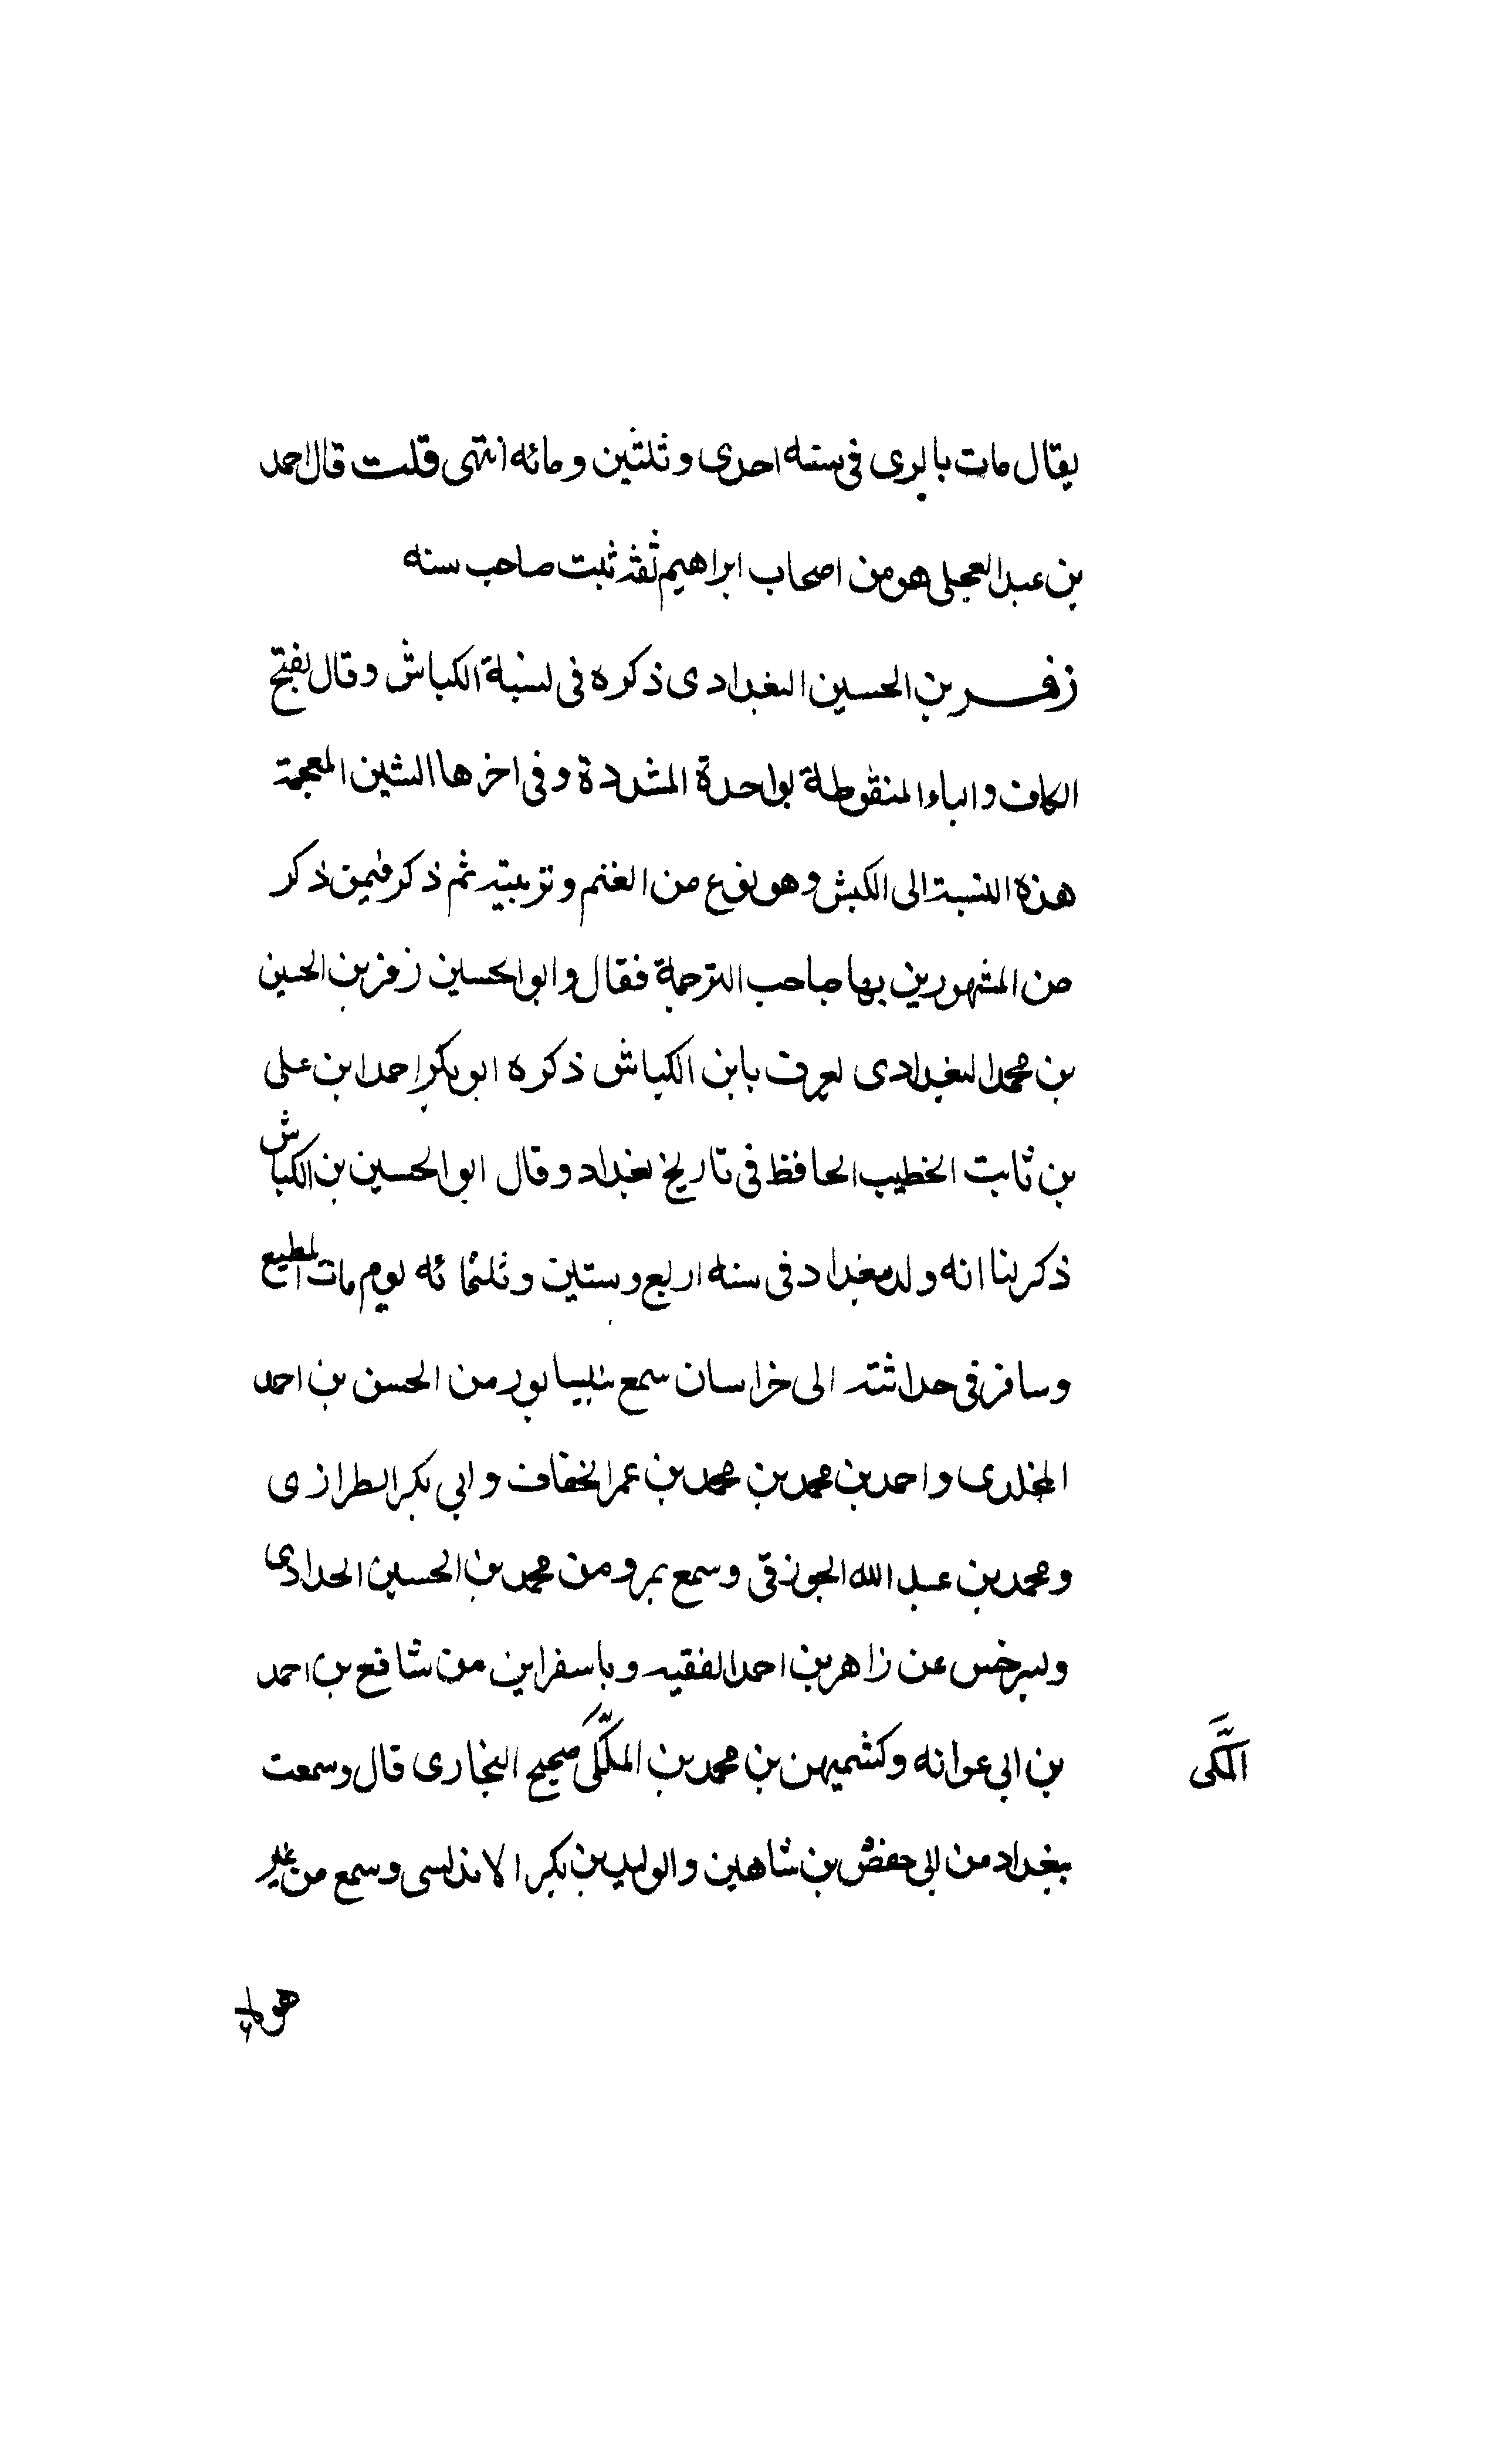 يقال مات بالري في سنه احدى وثلثين ومائه انتهى قلت قال احمد
بن عبد العجلى هو من اصحاب ابراهيم ثقة ثبت صاحب سنه
زفر بن الحسين البغدادى ذكره فى نسبة الكباش وقال بفتح
الكاف والباء المنقوطة بواحدة المشددة وفى اخرها الشين المعجمة
هذه النسبة الى الكبش وهو نوع من الغنم وتربيته ثم ذكر فيمن ذكر
من المشهورين بها صاحب الترجمة فقال وابو الحسين زفر بن الحسين
بن محمد البغدادى يعرف بابن الكباش ذكره ابو بكر احمد ابن على
بن ثابت الخطيب الحافظ فى تاريخ بغداد وقال ابو الحسين بن الكباش
ذكر لنا انه ولد ببغداد فى سنه اربع وستين وثلثمائه يوم مات المطيع
وسافر فى حداثته الى خراسان سمع بنيسابور من الحسن بن احمد
المخلدى واحمد بن محمد بن محمد بن عمر الخفاف وابي بكر الطرازى
ومحمد بن عبد الله الجوزقى وسمع بمرو من محمد بن الحسين الحدادى
وبسرخس عن زاهر بن احمد الفقيه وباسفراين من شافع بن احمد
بن ابى عوانه وكشميهن بن محمد بن المكّى صحيح البخارى قال وسمعت
المكّى
ببغداد من ابي حفص بن شاهين والوليد بن بكر الاندلسى وسمع من غير